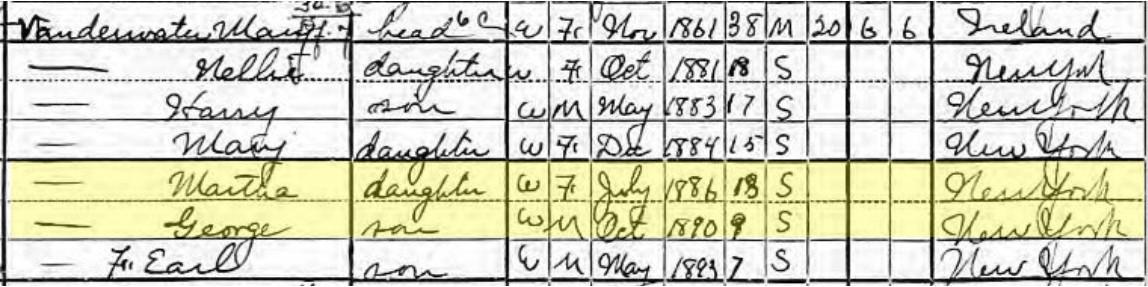 Vanderwater Mary head W F Nov 1861 38 M 20 6 6 Ireland
— Nellie daughter W F Oct 1881 18 S New York
— Harry son W M May 1883 17 S New York
— Mary daughter W F Dec 1884 15 S New York
— Martha daughter W F July 1886 13 S New York
— George son W M Oct 1890 9 S New York
— F. Earl son W M May 1893 7 S New York